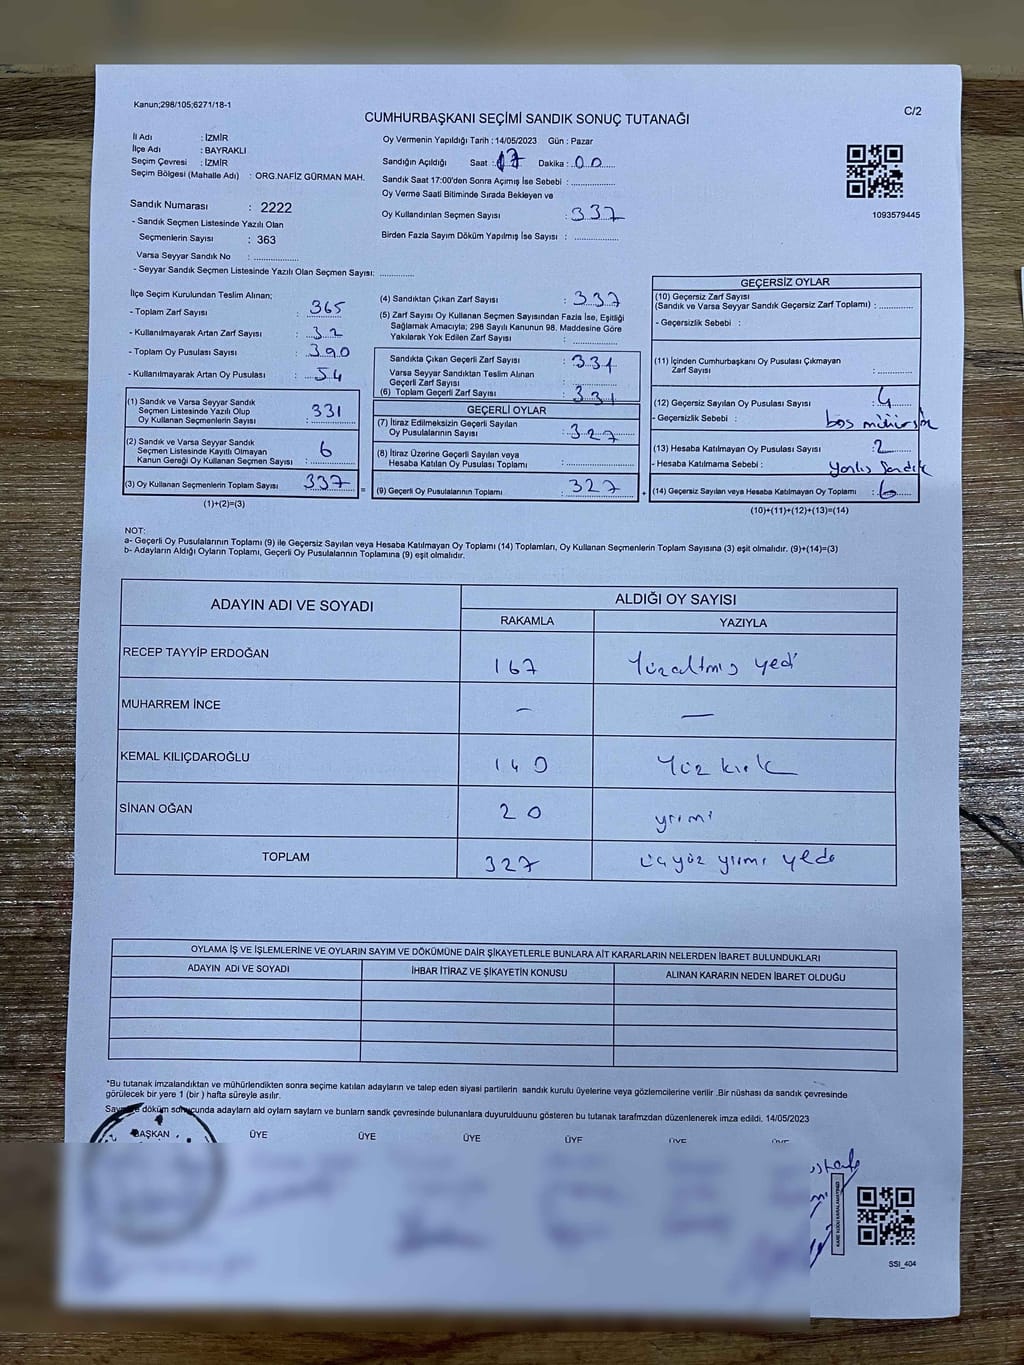 Kanun;298/105;6271/18-1
C/2
CUMHURBAŞKANI SEÇİMİ SANDIK SONUÇ TUTANAĞI
İl Adı : İZMİR
İlçe Adı : BAYRAKLI
Seçim Çevresi : İZMİR
Seçim Bölgesi (Mahalle Adı) : ORG.NAFİZ GÜRMAN MAH.
Sandık Numarası : 2222
- Sandık Seçmen Listesinde Yazılı Olan
Seçmenlerin Sayısı : 363
Varsa Seyyar Sandık No : ..............
- Seyyar Sandık Seçmen Listesinde Yazılı Olan Seçmen Sayısı: ............
Oy Vermenin Yapıldığı Tarih : 14/05/2023 Gün : Pazar
Sandığın Açıldığı Saat : 17 Dakika : 00
Sandık Saat 17:00'den Sonra Açımış İse Sebebi : ..............
Oy Verme Saati Bitiminde Sırada Bekleyen ve
Oy Kullandırılan Seçmen Sayısı : 337
Birden Fazla Sayım Döküm Yapılmış İse Sayısı : ..............
1093579445
İlçe Seçim Kurulundan Teslim Alınan;
- Toplam Zarf Sayısı : 365
- Kullanılmayarak Artan Zarf Sayısı : 32
- Toplam Oy Pusulası Sayısı : 390
- Kullanılmayarak Artan Oy Pusulası : 54
(1) Sandık ve Varsa Seyyar Sandık
Seçmen Listesinde Yazılı Olup
Oy Kullanan Seçmenlerin Sayısı : 331
(2) Sandık ve Varsa Seyyar Sandık
Seçmen Listesinde Kayıtlı Olmayan
Kanun Gereği Oy Kullanan Seçmen Sayısı : 6
(3) Oy Kullanan Seçmenlerin Toplam Sayısı : 337
(1)+(2)=(3)
(4) Sandıktan Çıkan Zarf Sayısı : 337
(5) Zarf Sayısı Oy Kullanan Seçmen Sayısından Fazla İse, Eşitliği
Sağlamak Amacıyla; 298 Sayılı Kanunun 98. Maddesine Göre
Yakılarak Yok Edilen Zarf Sayısı : ..............
Sandıkta Çıkan Geçerli Zarf Sayısı : 331
Varsa Seyyar Sandıktan Teslim Alınan
Geçerli Zarf Sayısı : ..............
(6) Toplam Geçerli Zarf Sayısı : 331
GEÇERLİ OYLAR
(7) İtiraz Edilmeksizin Geçerli Sayılan
Oy Pusulalarının Sayısı : 327
(8) İtiraz Üzerine Geçerli Sayılan veya
Hesaba Katılan Oy Pusulası Toplamı : ..............
(9) Geçerli Oy Pusulalarının Toplamı : 327
GEÇERSİZ OYLAR
(10) Geçersiz Zarf Sayısı
(Sandık ve Varsa Seyyar Sandık Geçersiz Zarf Toplamı) : ............
- Geçersizlik Sebebi :
(11) İçinden Cumhurbaşkanı Oy Pusulası Çıkmayan
Zarf Sayısı : ............
(12) Geçersiz Sayılan Oy Pusulası Sayısı : 4
- Geçersizlik Sebebi : boş
(13) Hesaba Katılmayan Oy Pusulası Sayısı : 2
- Hesaba Katılmama Sebebi : Yanlış Sandık
(14) Geçersiz Sayılan veya Hesaba Katılmayan Oy Toplamı : 6
(10)+(11)+(12)+(13)=(14)
NOT:
a- Geçerli Oy Pusulalarının Toplamı (9) ile Geçersiz Sayılan veya Hesaba Katılmayan Oy Toplamı (14) Toplamları, Oy Kullanan Seçmenlerin Toplam Sayısına (3) eşit olmalıdır. (9)+(14)=(3)
b- Adayların Aldığı Oyların Toplamı, Geçerli Oy Pusulalarının Toplamına (9) eşit olmalıdır.
ADAYIN ADI VE SOYADI
ALDIĞI OY SAYISI
RAKAMLA YAZIYLA
RECEP TAYYİP ERDOĞAN 167 Yüzaltmış yedi
MUHARREM İNCE – —
KEMAL KILIÇDAROĞLU 140 Yüz kırk
SİNAN OĞAN 20 yirmi
TOPLAM 327 üçyüz yirmi yedi
OYLAMA İŞ VE İŞLEMLERİNE VE OYLARIN SAYIM VE DÖKÜMÜNE DAİR ŞİKAYETLERLE BUNLARA AİT KARARLARIN NELERDEN İBARET BULUNDUKLARI
ADAYIN ADI VE SOYADI İHBAR İTİRAZ VE ŞİKAYETİN KONUSU ALINAN KARARIN NEDEN İBARET OLDUĞU
*Bu tutanak imzalandıktan ve mühürlendikten sonra seçime katılan adayların ve talep eden siyasi partilerin sandık kurulu üyelerine veya gözlemcilerine verilir .Bir nüshası da sandık çevresinde
görülecek bir yere 1 (bir ) hafta süreyle asılır.
döküm sonucunda adayların ald oyların sayların ve bunların sandk çevresinde bulunanlara duyurulduunu gösteren bu tutanak tarafmzdan düzenlenerek imza edildi. 14/05/2023
BAŞKAN ÜYE ÜYE ÜYE ÜYE ÜYE
SSI_404